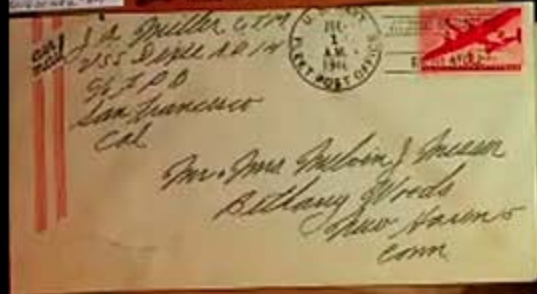 air mail
J A Miller CTM
USS Dixie AD 14
c/o F P O
San Francisco
Cal
U.S. NAVY
1
A.M.
FLEET POST OFFICE
Mr. Mrs. Melvin J
Bethany Woods
New Haven 5
Conn